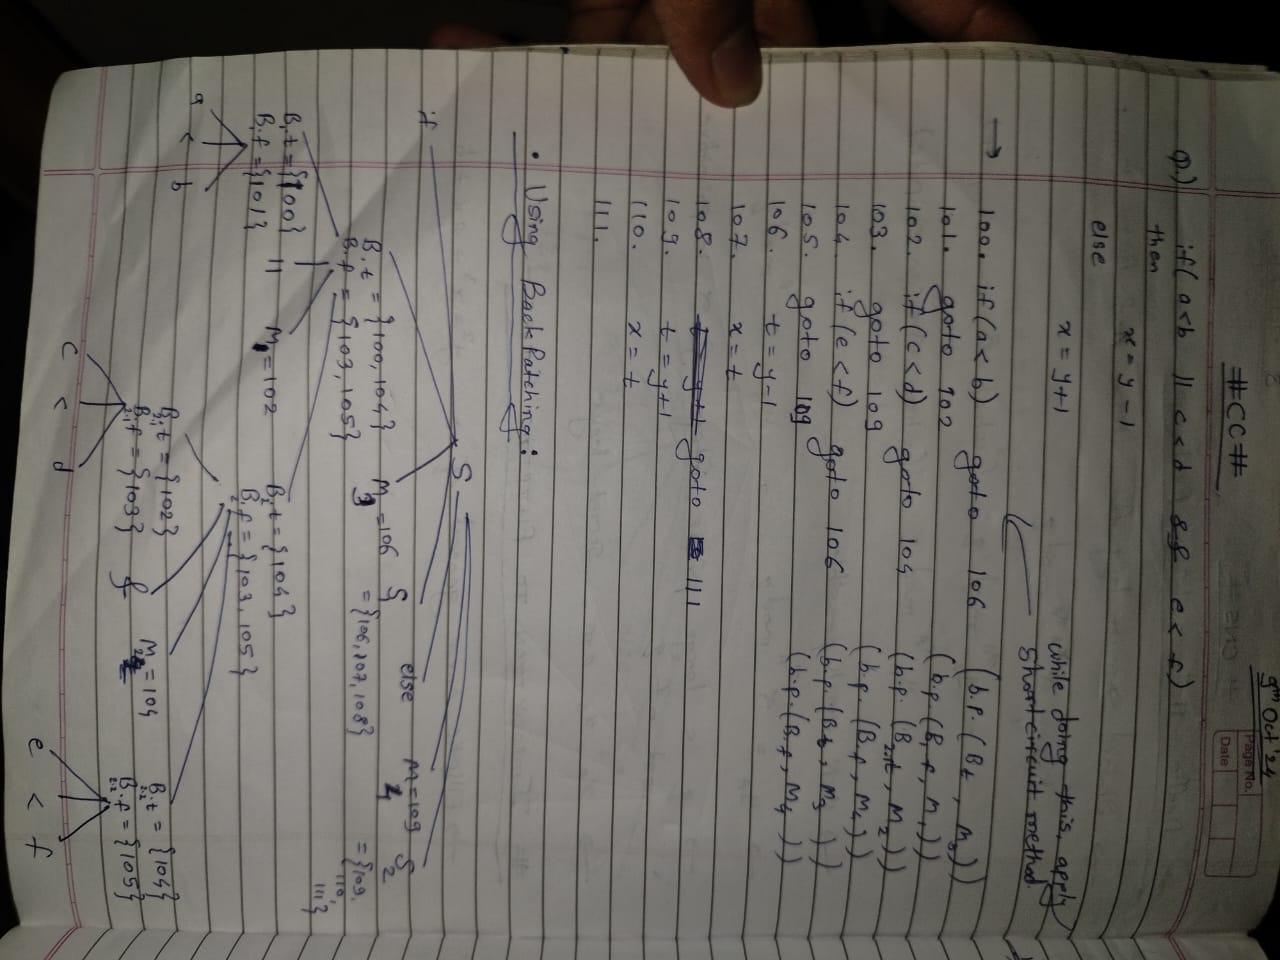 9th Oct '24
Page No.
#CC#
Date
Q.) if( a<b || c<d && e<f)
then
x = y-1
else
x = y+1
while doing this, apply
Short circuit method.
→ 100. if(a<b) goto 106 (b.p. (B.t, M3))
101. goto 102 (b.p. (B1.f, M1))
102. if(c<d) goto 104 (b.p. (B2.1.t, M2))
103. goto 109 (b.p. (B.f, M4))
104. if(e<f) goto 106 (b.p. (B.t, M3))
105. goto 109 (b.p. (B.f, M4))
106. t = y-1
107. x = t
108. goto 111
109. t = y+1
110. x = t
111.
• Using BackPatching:
S
if B.t = {100, 104} M3 = 106 S1 else M4 = 109 S2
B.f = {103, 105} = {106, 107, 108} = {109,
110,
111}
B1.t = {100} || M1 = 102 B2.t = {104}
B1.f = {101} B2.f = {103, 105}
a < b
B2.1.t = {102} M2 = 104 B2.2.t = {104}
B2.1.f = {103} B2.2.f = {105}
c < d
e < f